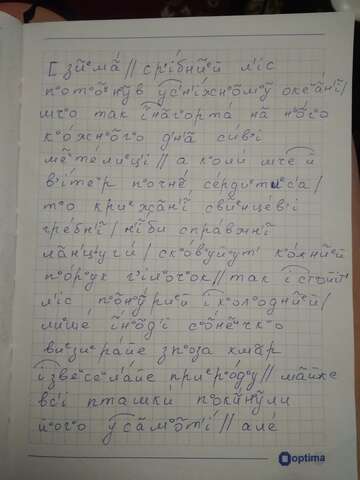 [ зи́ма́ // ср'і́бний л'іс
п°ото°ну́в у͡с'н'і́жн°ому оке́а́н'і /
шч°о так і͡нагорта́ на н°о́г°о
к°о́жн°ого дн'а́ си́в'і
ме̃те́лиц'і // а кол'и́ шче й
в'і́те̃р п°очне́ се́рдитиса /
т°о кри͡жа́н'і свинце́в'і
гре́бн'і / н'і́би спра́вжн'і
ланц'уги́ / ск°о́в°уйут' к°о́жний
п°о́рух г'і́л°оч°ок // так і͡стойі́т'
л'іс п°ону́рий і͡хол°о́дний /
лише́ і́н°од'і с°о́не̃чк°о
визира́йе зп°оза хмар
і͡звесел'а́йе при͡р°о́ду // ма́йже
вс'і пташки́ п°оки́нули
й°ог°о у͡сам°о́т'і // але́
optima